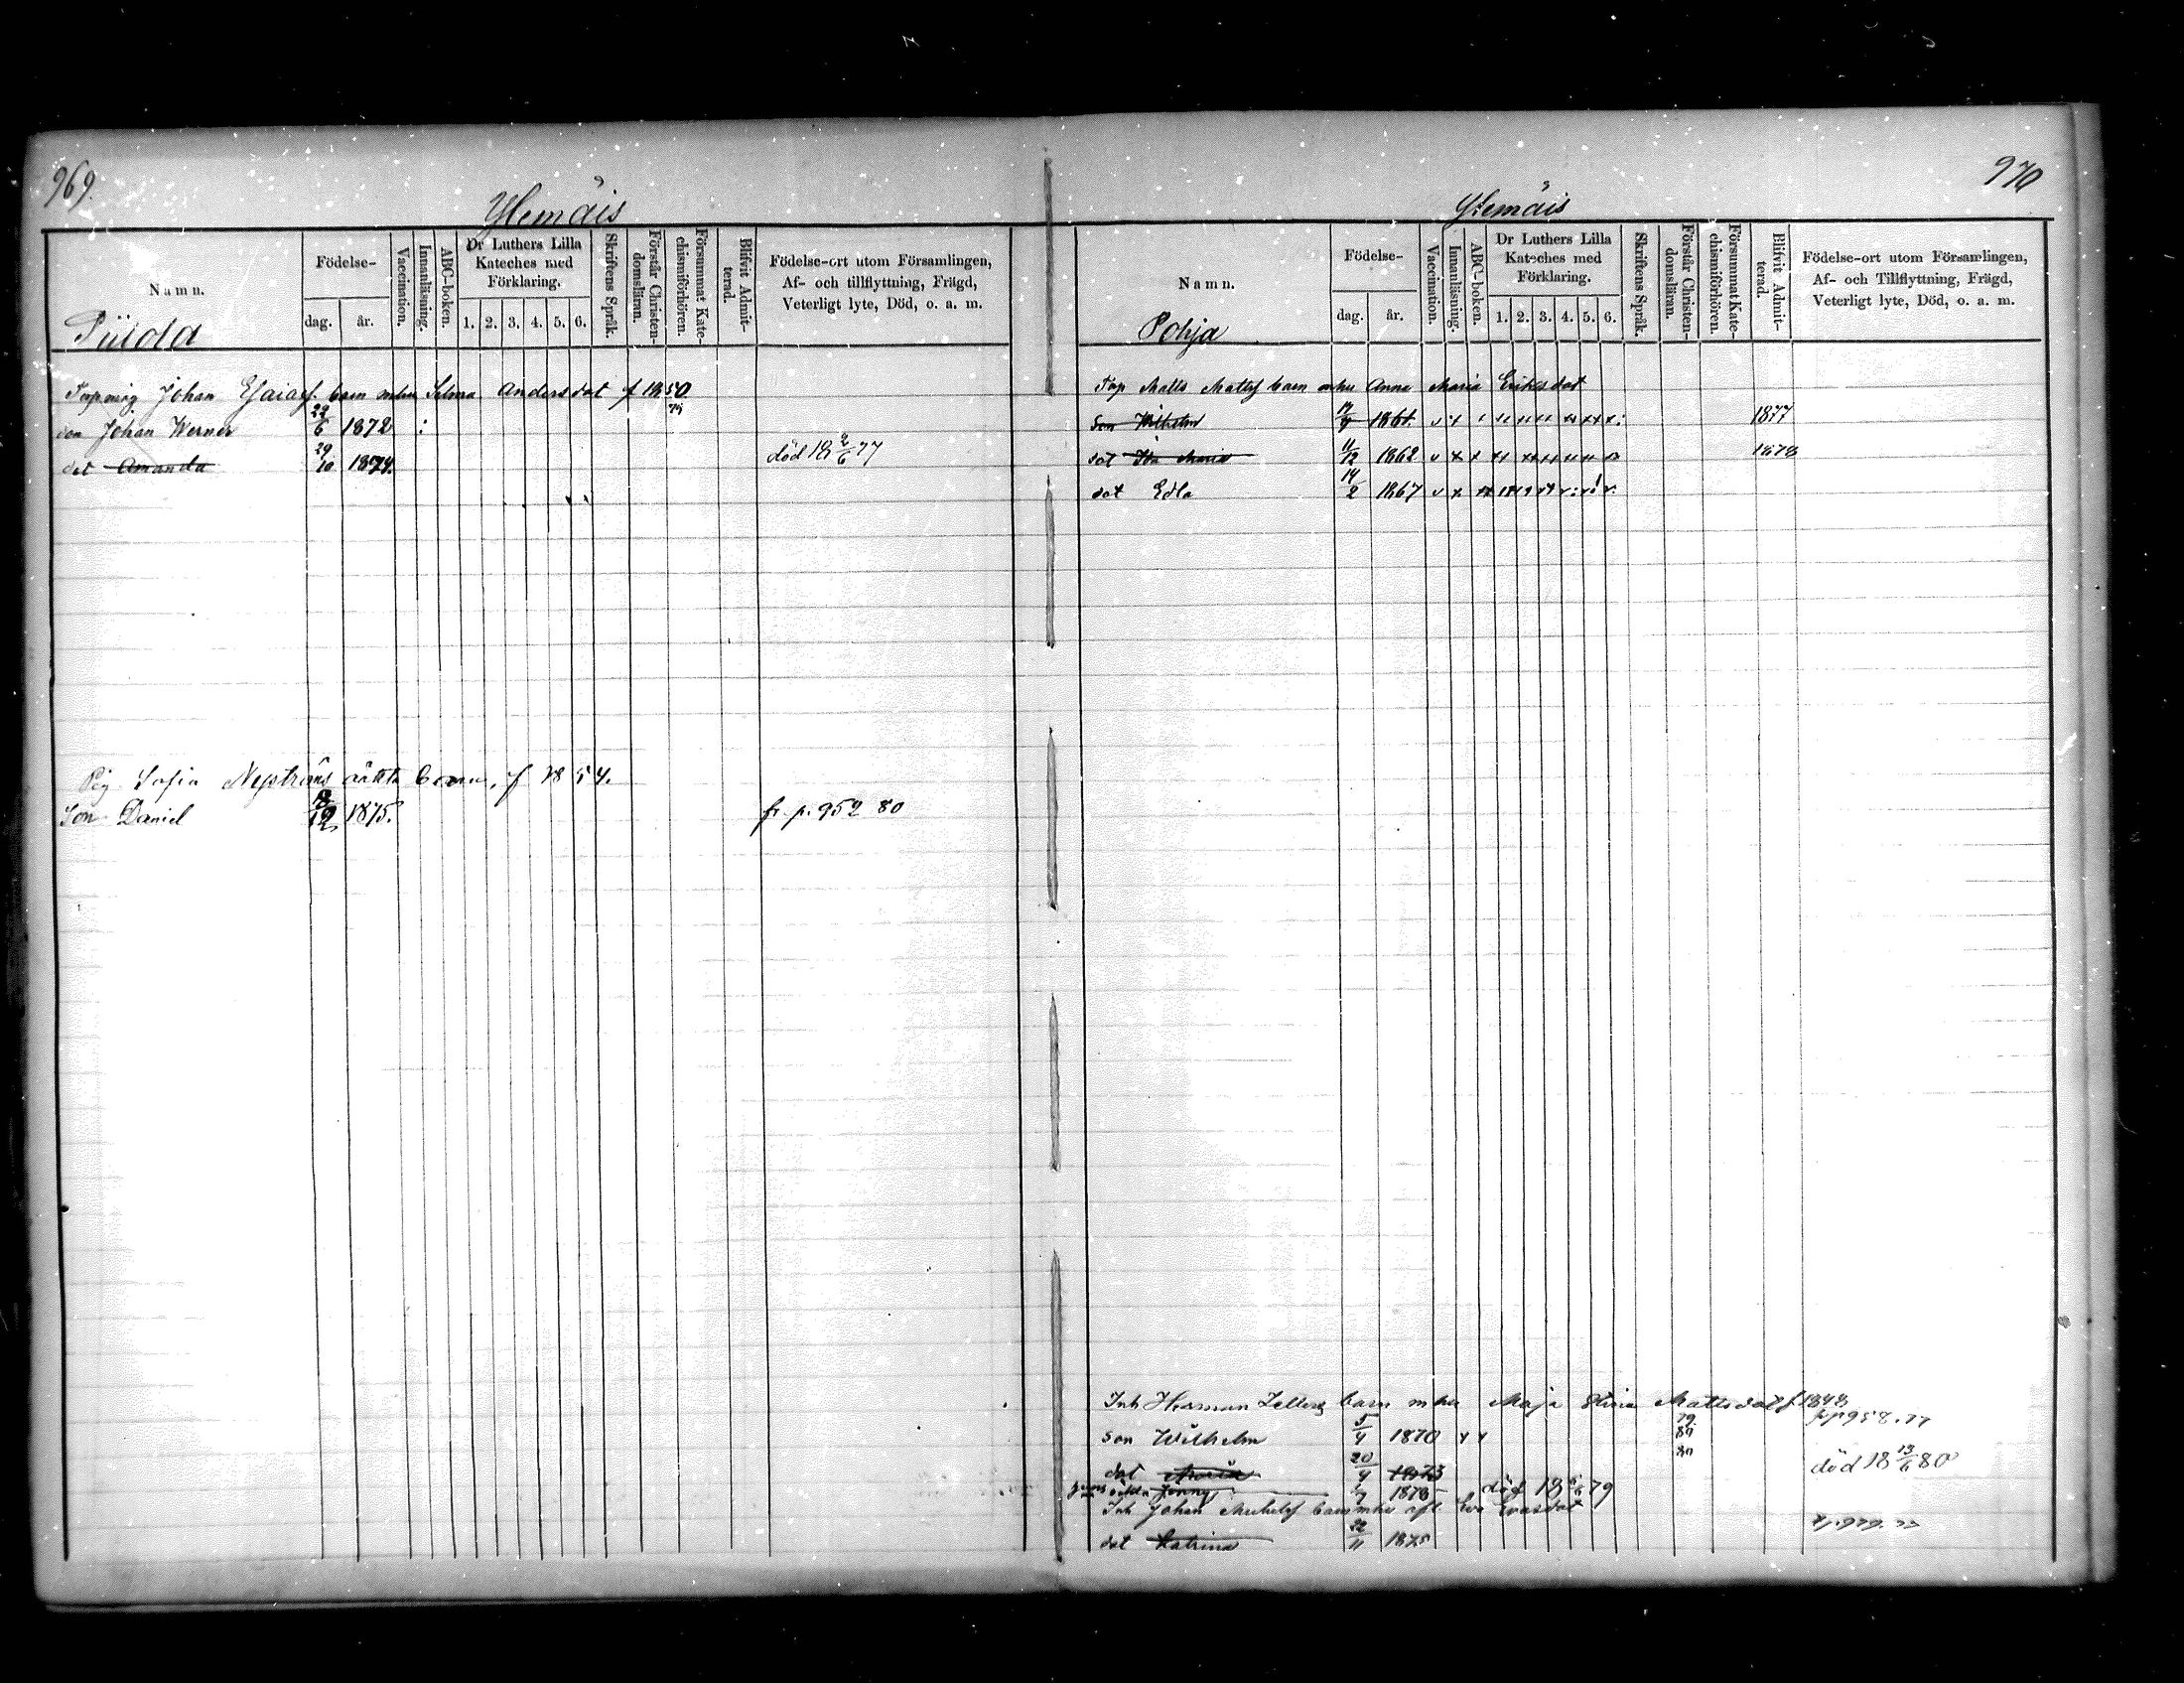 969.
Ylemäis
Namn.
Födelse-
dag. år.
Vaccination.
Innanläsning.
ABC-boken.
Dr Luthers Lilla Kateches med Förklaring.
1. 2. 3. 4. 5. 6.
Skriftens Språk.
Förstår Christen-domsläran.
Försummat Kate-chismiförhören.
Blifvit Admit-terad.
Födelse-ort utom Församlingen,
Af- och tillflyttning, Frägd,
Veterligt lyte, Död, o. a. m.
Johan Esaiasf. barn mhu Selma Andersdot f 1850
son Johan Werner 22/6 1872 :
dot Amanda 29/10 1874. död 18 2/6 77
Pig Sofia Nyströms oäkta barn, f 1854.
Son Daniel 18/12 1875. fr. p. 952 80
970
Ylemäis
Namn.
Pohja
Födelse-
dag. år.
Vaccination.
Innanläsning.
ABC-boken.
Dr Luthers Lilla Kateches med Förklaring.
1. 2. 3. 4. 5. 6.
Skriftens Språk.
Förstår Christen-domsläran.
Försummat Kate-chismiförhören.
Blifvit Admit-terad.
Födelse-ort utom Församlingen,
Af- och Tillflyttning, Frägd,
Veterligt lyte, Död, o. a. m.
Matts Mattsf barn mhu Anna Maria Eriksdot
Son Wilhelm 1861. 1877
dot Ida Maria 11/12 1862 1878
dot Edla 14/2 1867
Inh Herman barn mhu Maja Mattsdot f 1848
son Wilhelm 5/4 1870 79
dot Maria 20/4 1873 80 död 18 13/6 80
Jenny 1878 död 18 79
Inh Johan barn mhu Eva Evasdot
dot Katrina 22/11 1875